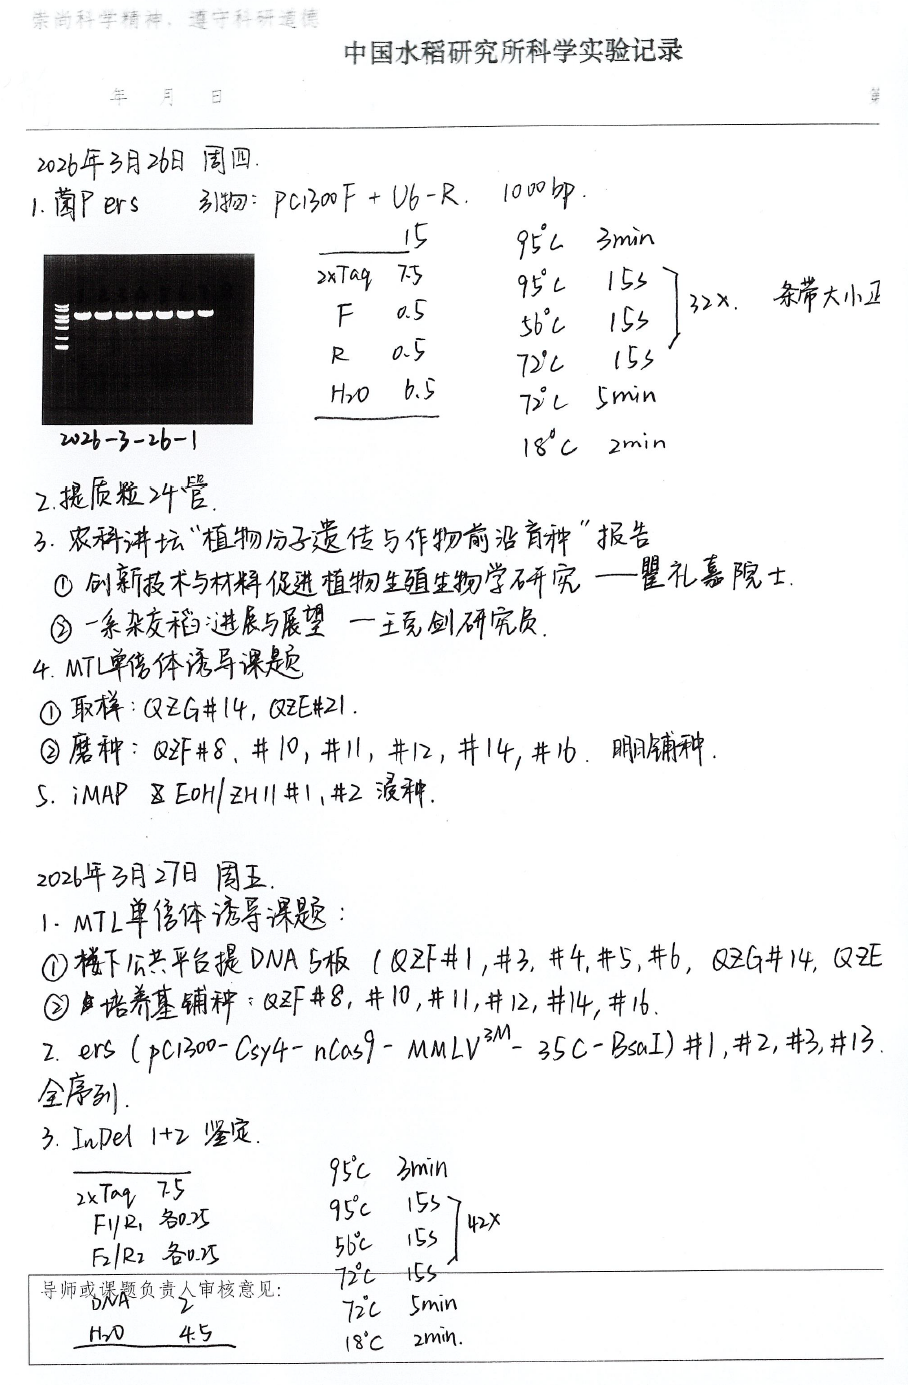 崇尚科学精神，遵守科研道德
中国水稻研究所科学实验记录
年 月 日 第
2026年3月26日 周四.
1. 菌P ers 引物: PC1300F + U6-R. 1000bp.
15
2xTaq 7.5
F 0.5
R 0.5
H2O 6.5
95℃ 3min
95℃ 15s
56℃ 15s
72℃ 15s
32x.
72℃ 5min
18℃ 2min
条带大小正
1 2 3 4 5 6 7 8
2026-3-26-1
2. 提质粒24管.
3. 农科讲坛“植物分子遗传与作物前沿育种”报告
① 创新技术与材料促进植物生殖生物学研究 — 瞿礼嘉院士.
② 一系杂交稻:进展与展望 — 王克剑研究员.
4. MTL单倍体诱导课题
① 取样: QZG#14, QZE#21.
② 磨种: QZF#8、#10, #11, #12, #14, #16. 明日铺种.
5. iMAP EOH/ZH11 #1, #2 浸种.
2026年3月27日 周五.
1. MTL单倍体诱导课题:
① 楼下公共平台提DNA 5板 (QZF#1, #3, #4, #5, #6, QZG#14, QZE
② 培养基铺种: QZF#8, #10, #11, #12, #14, #16.
2. ers (pC1300-Csy4-nCas9-MMLV3M-35C-BsaI) #1, #2, #3, #13.
全序列.
3. InDel 1+2 鉴定.
2xTaq 7.5
F1/R1 各0.25
F2/R2 各0.25
DNA 2
H2O 4.5
95℃ 3min
95℃ 15s
56℃ 15s
72℃ 15s
42x
72℃ 5min
18℃ 2min.
导师或课题负责人审核意见: